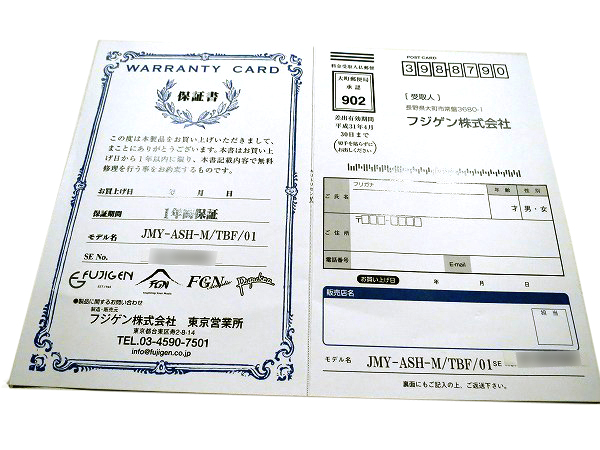 WARRANTY CARD
保証書
この度は本製品をお買い上げいただきまして、
まことにありがとうございます。本書はお買い上
げ日から1年以内に限り、本書記載内容で無料
修理を行う事をお約束するものです。
お買上げ日 年 月 日
保証期間 1年間保証
モデル名 JMY-ASH-M/TBF/01
SE No.
FUJIGEN
EST.1960
FGN
FGN
●製品に関するお問い合わせ
製造・販売元
フジゲン株式会社 東京営業所
東京都台東区寿2-8-14
TEL.03-4590-7501
info@fujigen.co.jp
POST CARD
料金受取人払郵便
大町郵便局
承認
902
差出有効期間
平成31年4月
30日まで
(切手を貼らずに
お出しください)
3988790
[受取人]
長野県大町市常盤3680-1
フジゲン株式会社
フリガナ
ご氏名
年齢 性別
才 男・女
ご住所
〒□□□-□□□□
電話番号
E-mail
お買い上げ日 年 月 日
販売店名
担当
モデル名 JMY-ASH-M/TBF/01 SE
裏面にもご記入の上、ご返送下さい。